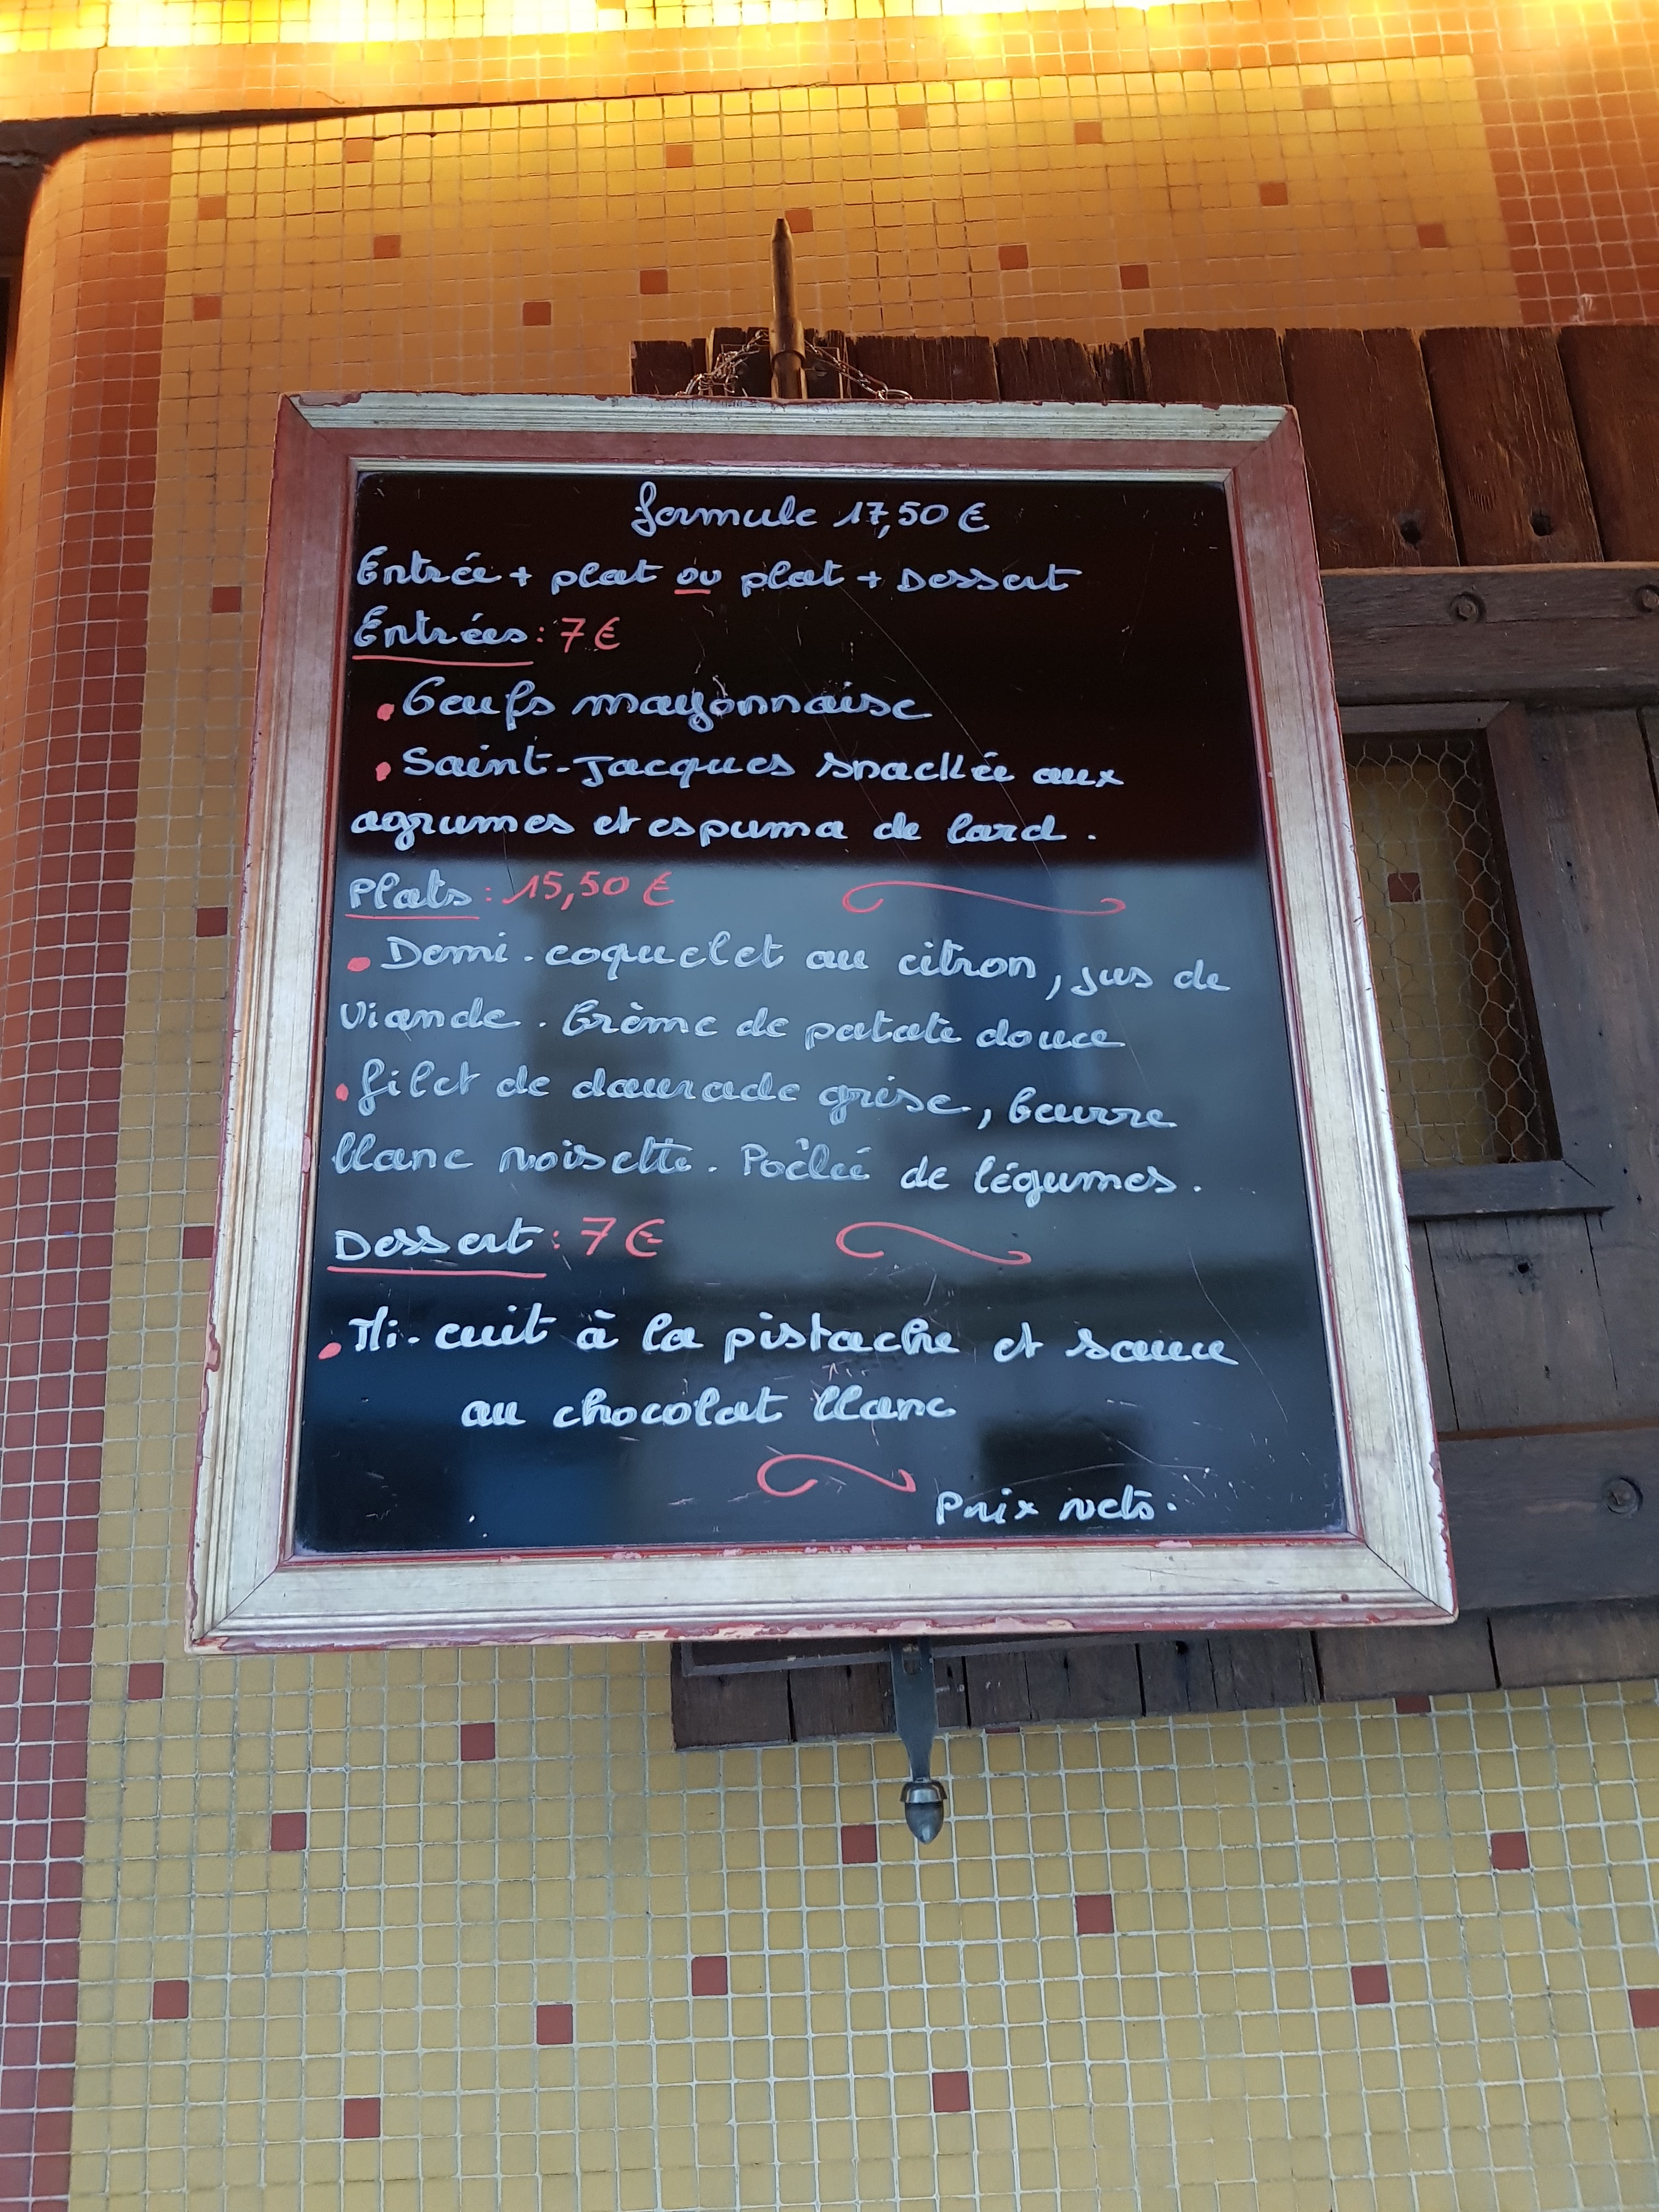 formule 17,50 €
Entrée + plat ou plat + Dessert
Entrées : 7 €
• Oeufs mayonnaise
• Saint-Jacques snackée aux
agrumes et espuma de lard.
Plats : 15,50 €
• Demi-coquelet au citron, jus de
viande. Crème de patate douce
• filet de daurade grise, beurre
blanc noisette. Poêlée de légumes.
Dessert : 7 €
• Mi-cuit à la pistache et sauce
au chocolat blanc
Prix nets.